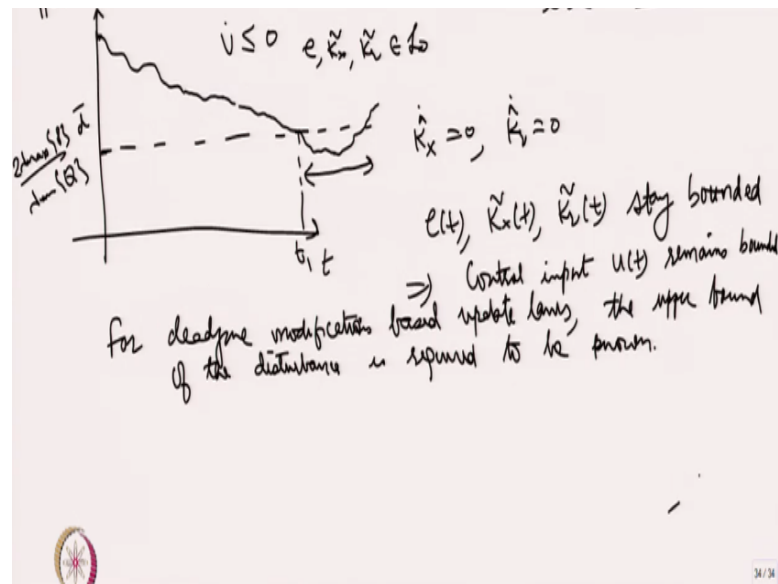 V̇ ≤ 0 e, K̃x, K̃r ∈ L∞
2λmax{P} d̄
λmin{Q}
K̂̇x = 0, K̂̇r = 0
e(t), K̃x(t), K̃r(t) stay bounded
t1 t
⇒ Control input u(t) remains bounde
For deadzone modifications based update laws, the upper bound
of the disturbance is required to be known.
34 / 34